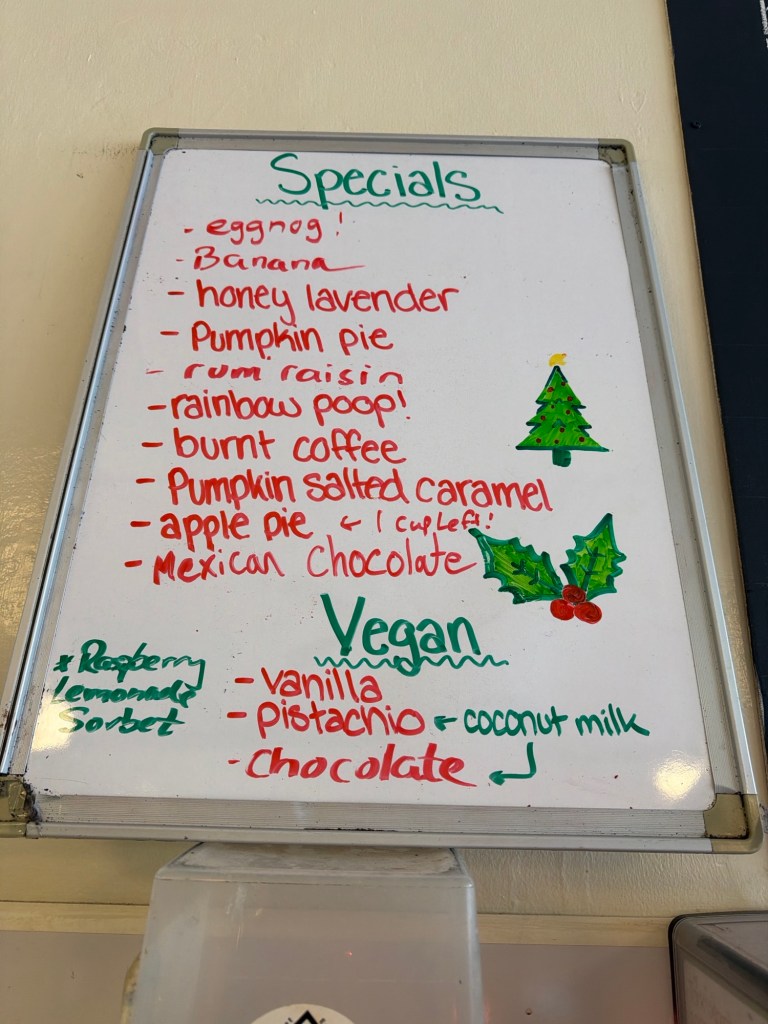 Specials
- eggnog!
- Banana
- honey lavender
- Pumpkin pie
- rum raisin
- rainbow poop!
- burnt coffee
- Pumpkin salted caramel
- apple pie ← 1 cup Left!
- Mexican Chocolate
Vegan
* Raspberry
Lemonade
Sorbet
- vanilla
- pistachio ← coconut milk
- Chocolate ↲